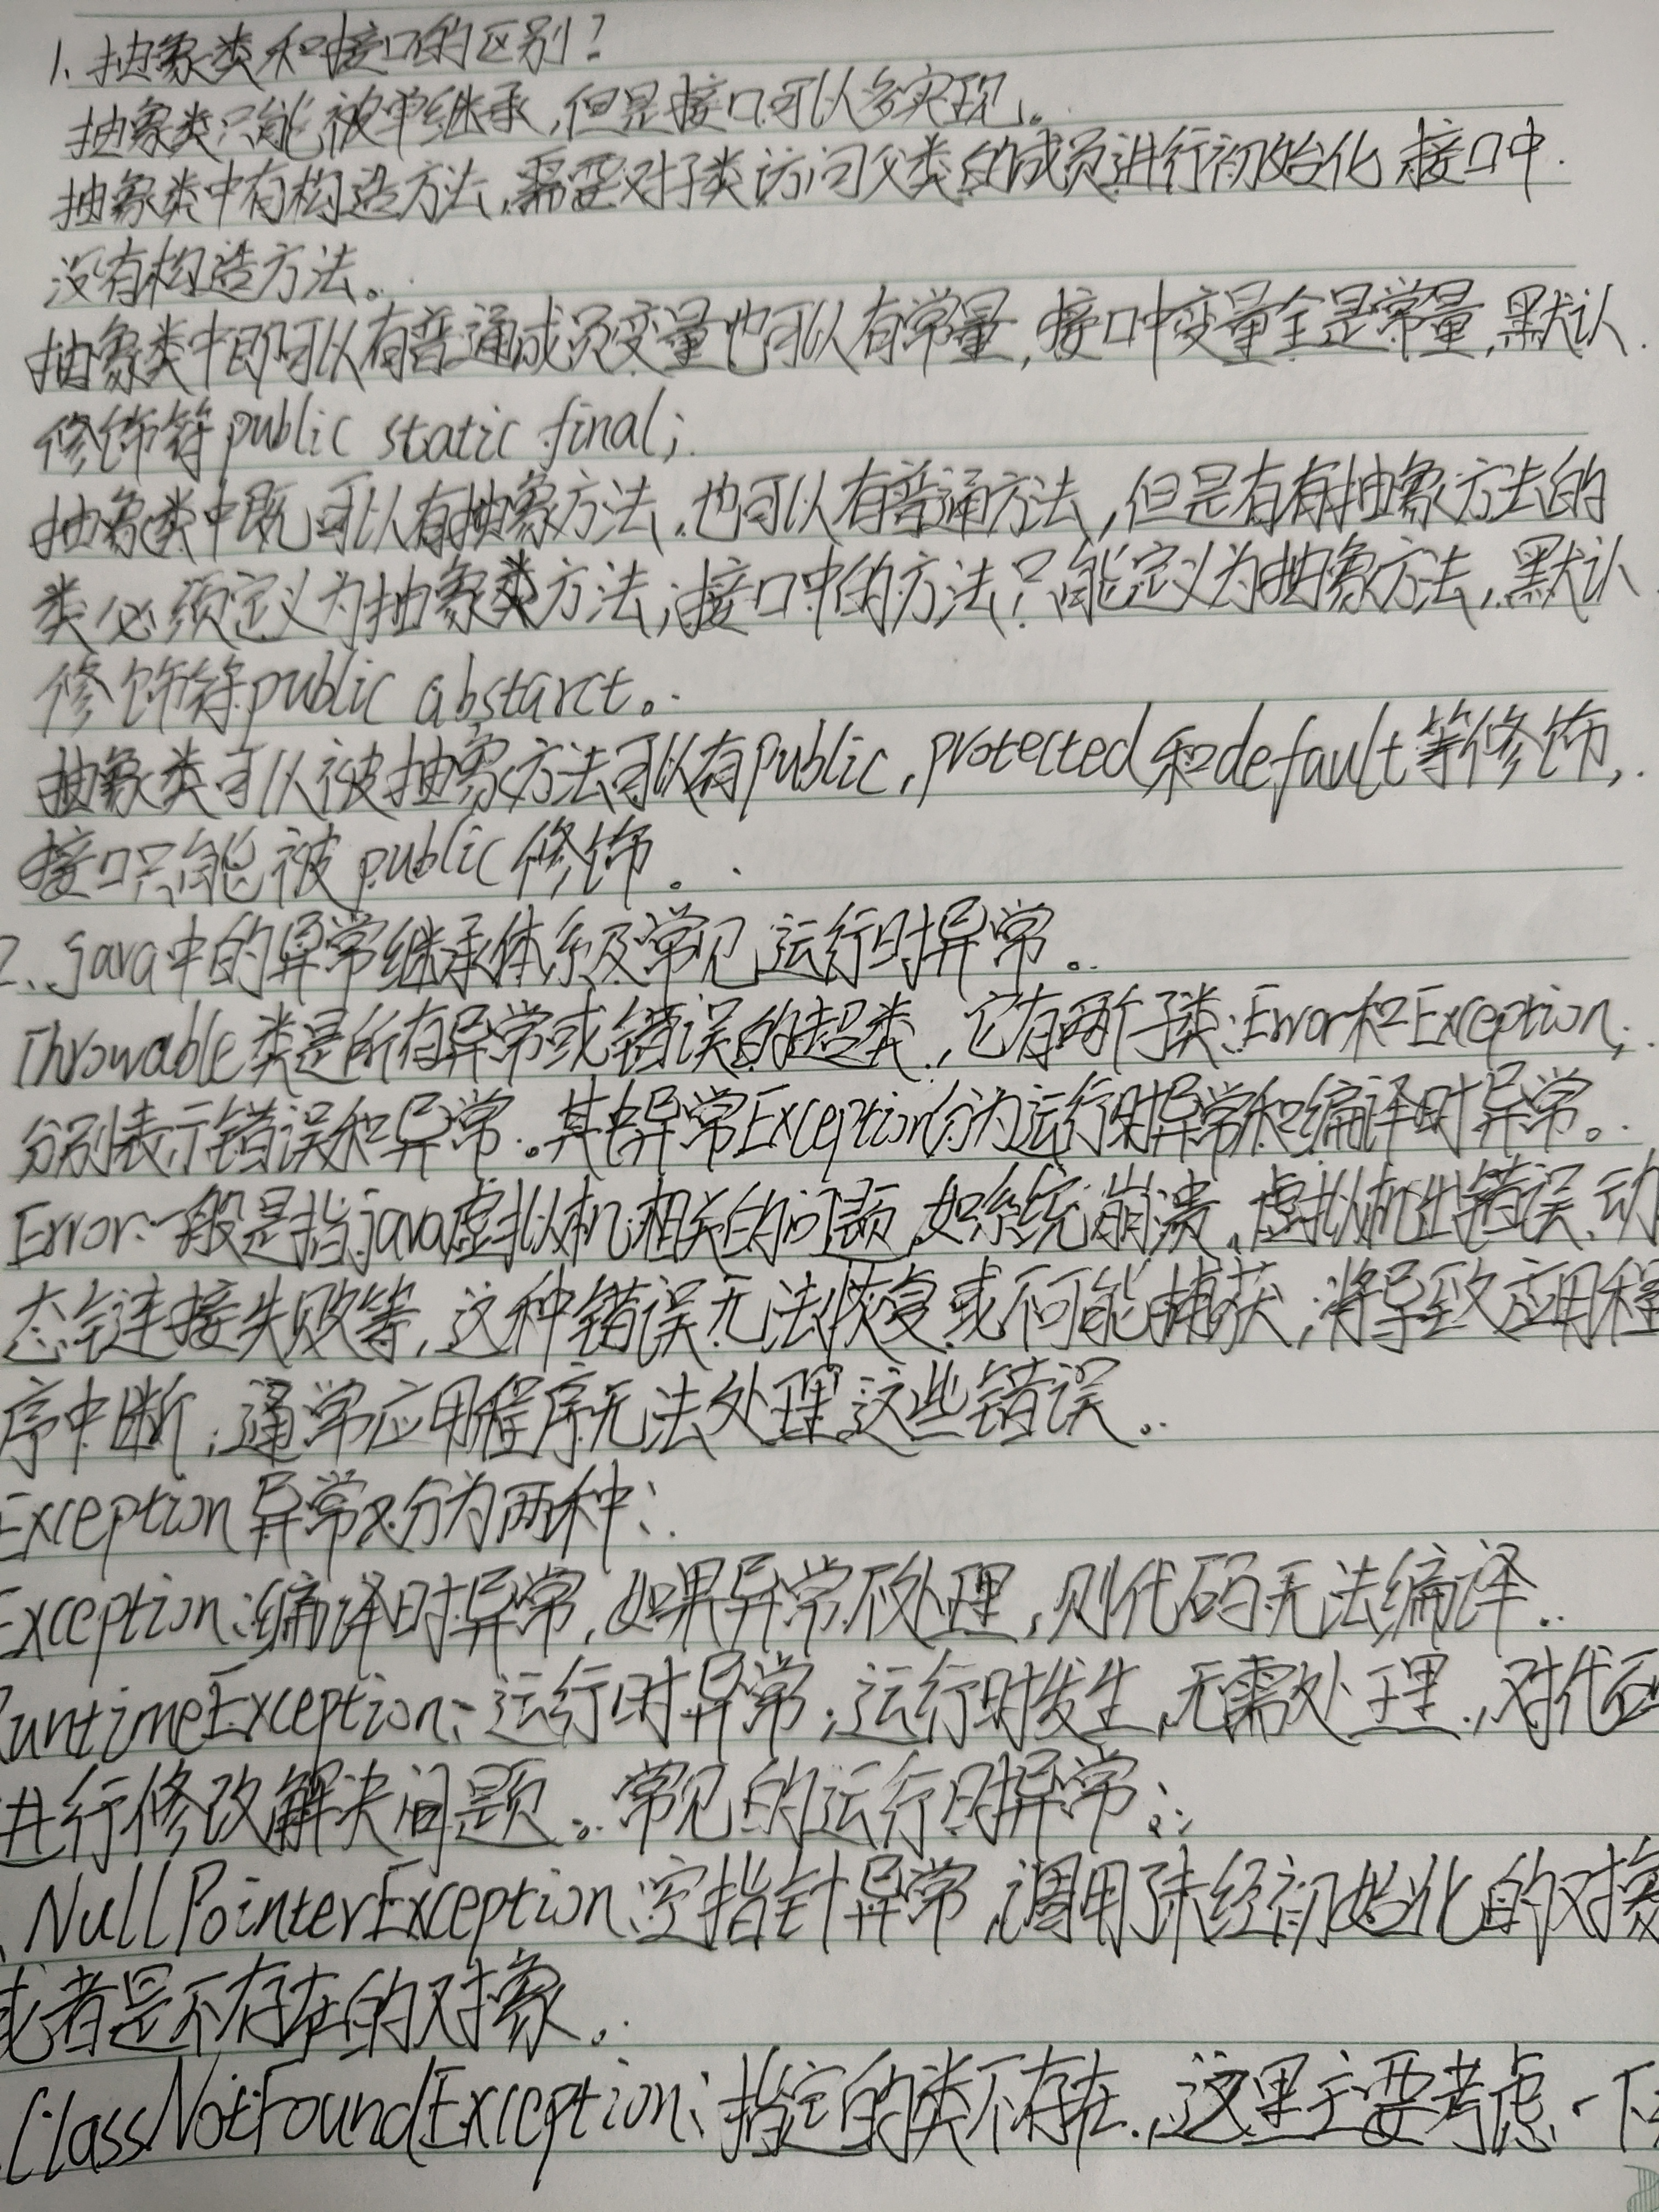 1、抽象类和接口的区别？
抽象类只能被单继承,但是接口可以多实现。
抽象类中有构造方法,需要对子类访问父类的成员进行初始化 接口中
没有构造方法。
抽象类中即可以有普通成员变量也可以有常量,接口中变量全是常量,默认
修饰符public static final;
抽象类中既可以有抽象方法,也可以有普通方法,但是有有抽象方法的
类必须定义为抽象类方法;接口中的方法只能定义为抽象方法,默认
修饰符public abstarct。
抽象类可以被抽象方法可以有public,protected和default等修饰,
接口只能被public修饰。
2、java中的异常继承体系及常见运行时异常。
Throwable类是所有异常或错误的超类,它有两个子类:Error和Exception,
分别表示错误和异常。其中异常Exception分为运行时异常和编译时异常。
Error:一般是指java虚拟机相关的问题,如系统崩溃,虚拟机出错误、动
态链接失败等,这种错误无法恢复或不可能捕获,将导致应用程
序中断,通常应用程序无法处理这些错误。
Exception异常又分为两种:
Exception:编译时异常,如果异常不处理,则代码无法编译。
RuntimeException:运行时异常,运行时发生,无需处理,对代码
进行修改解决问题。常见的运行时异常:
、NullPointerException:空指针异常,调用了未经初始化的对象
或者是不存在的对象。
ClassNotFoundException:指定的类不存在,这里主要考虑一下